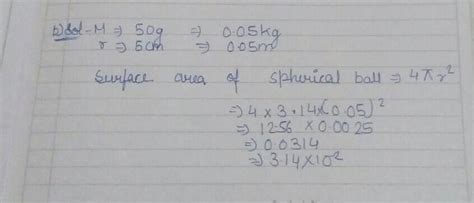 b) Sol - M ⇒ 50g ⇒ 0.05kg
r ⇒ 5cm ⇒ 0.05m
Surface area of spherical ball ⇒ 4πr²
⇒ 4 × 3.14×(0.05)²
⇒ 12.56 × 0.0025
⇒ 0.0314
⇒ 3.14×10²